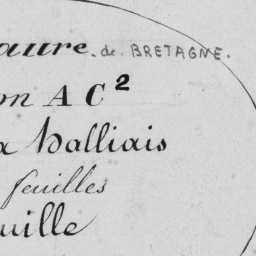 aure. de BRETAGNE.
on A C²
a halliais
feuilles
uille